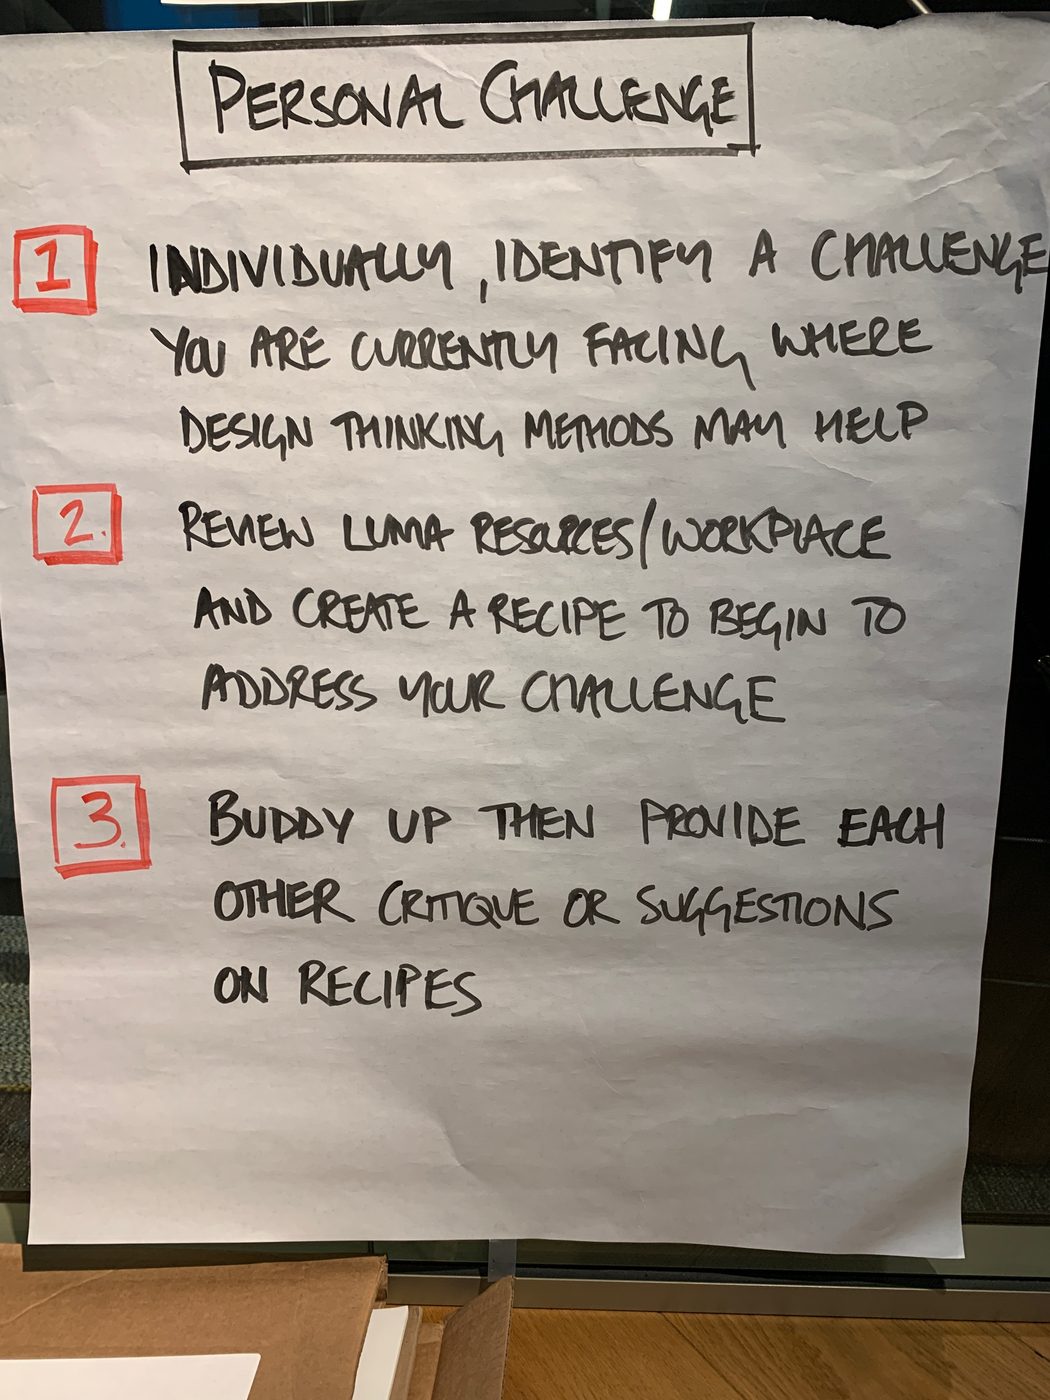 PERSONAL CHALLENGE
1 INDIVIDUALLY, IDENTIFY A CHALLENGE
YOU ARE CURRENTLY FACING WHERE
DESIGN THINKING METHODS MAY HELP
2. REVIEW LUMA RESOURCES/WORKPLACE
AND CREATE A RECIPE TO BEGIN TO
ADDRESS YOUR CHALLENGE
3. BUDDY UP THEN PROVIDE EACH
OTHER CRITIQUE OR SUGGESTIONS
ON RECIPES